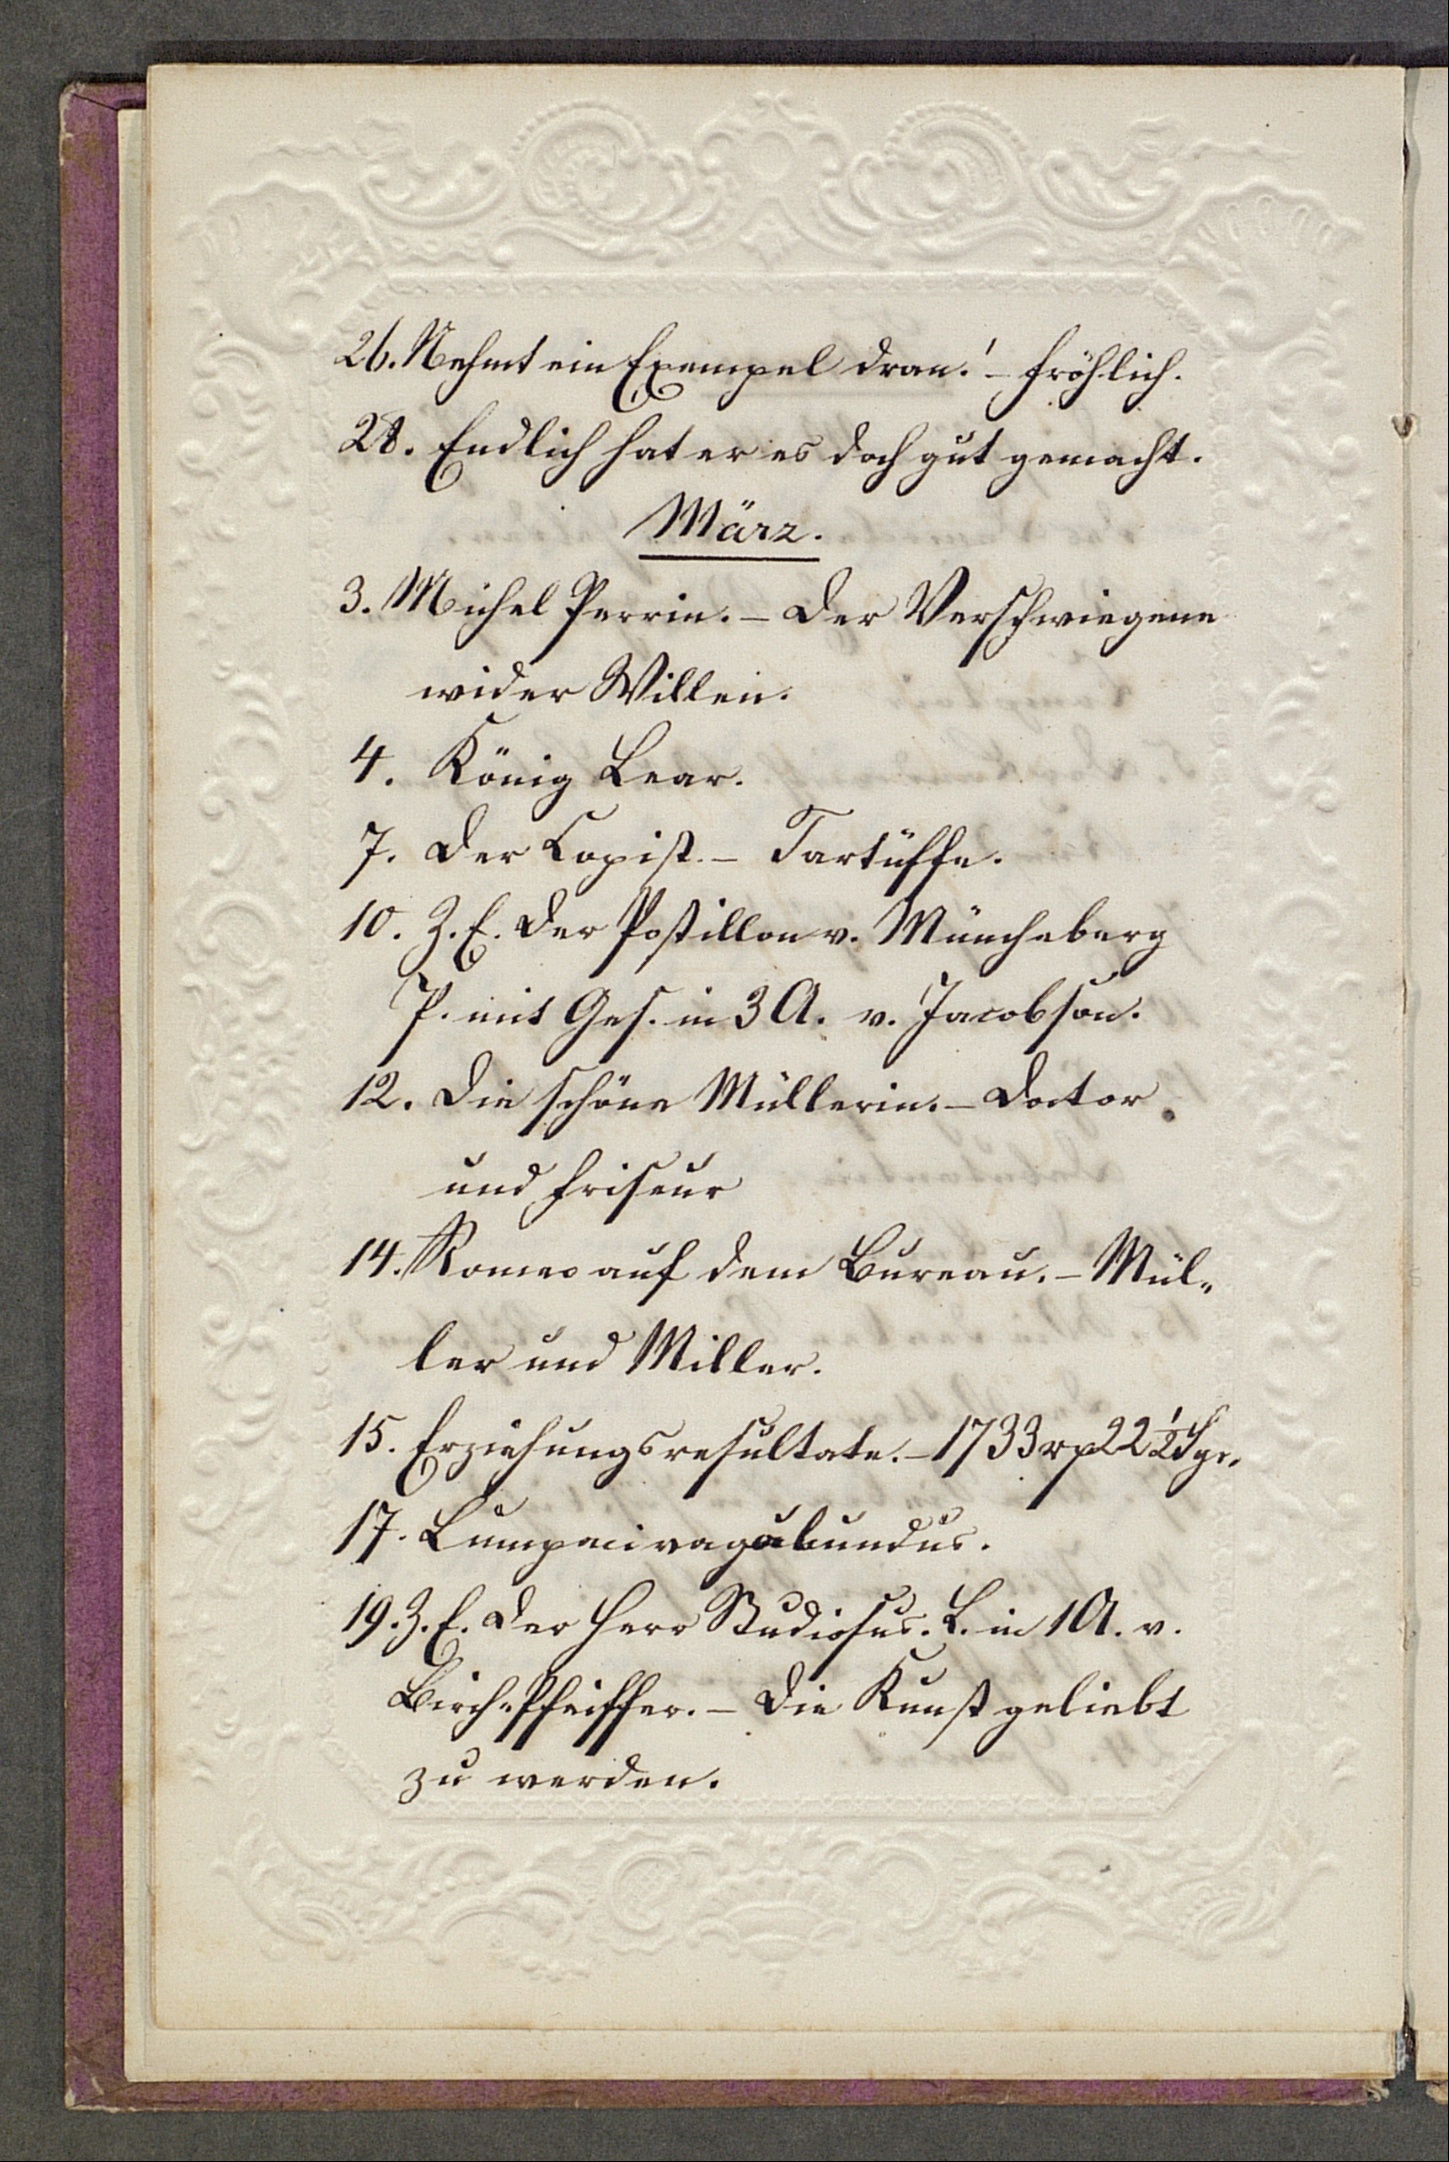 26. Nehmt ein Exempel dran! – Fröhlich.
28. Endlich hat er es doch gut gemacht.
März.
3. Michel Perrin. – Der Verschwiegene
wider Willen.
4. König Lear.
7. Der Copist. – Tartüffe.
10. Z. E. Der Postillon v. Müncheberg
P. mit Ges. in 3 A. v. Jacobson.
12. Die schöne Müllerin. – Doctor
und Friseur
14. Romeo auf dem Bureau. – Mül-
ler und Miller.
15. Erziehungsresultate. – 1733 rp 22 1/2 Sgr.
17. Lumpacivagabundus.
19. Z. E. Der Herr Studiosus. L. in 1 A. v.
Birch-Pfeiffer. – Die Kunst geliebt
zu werden.